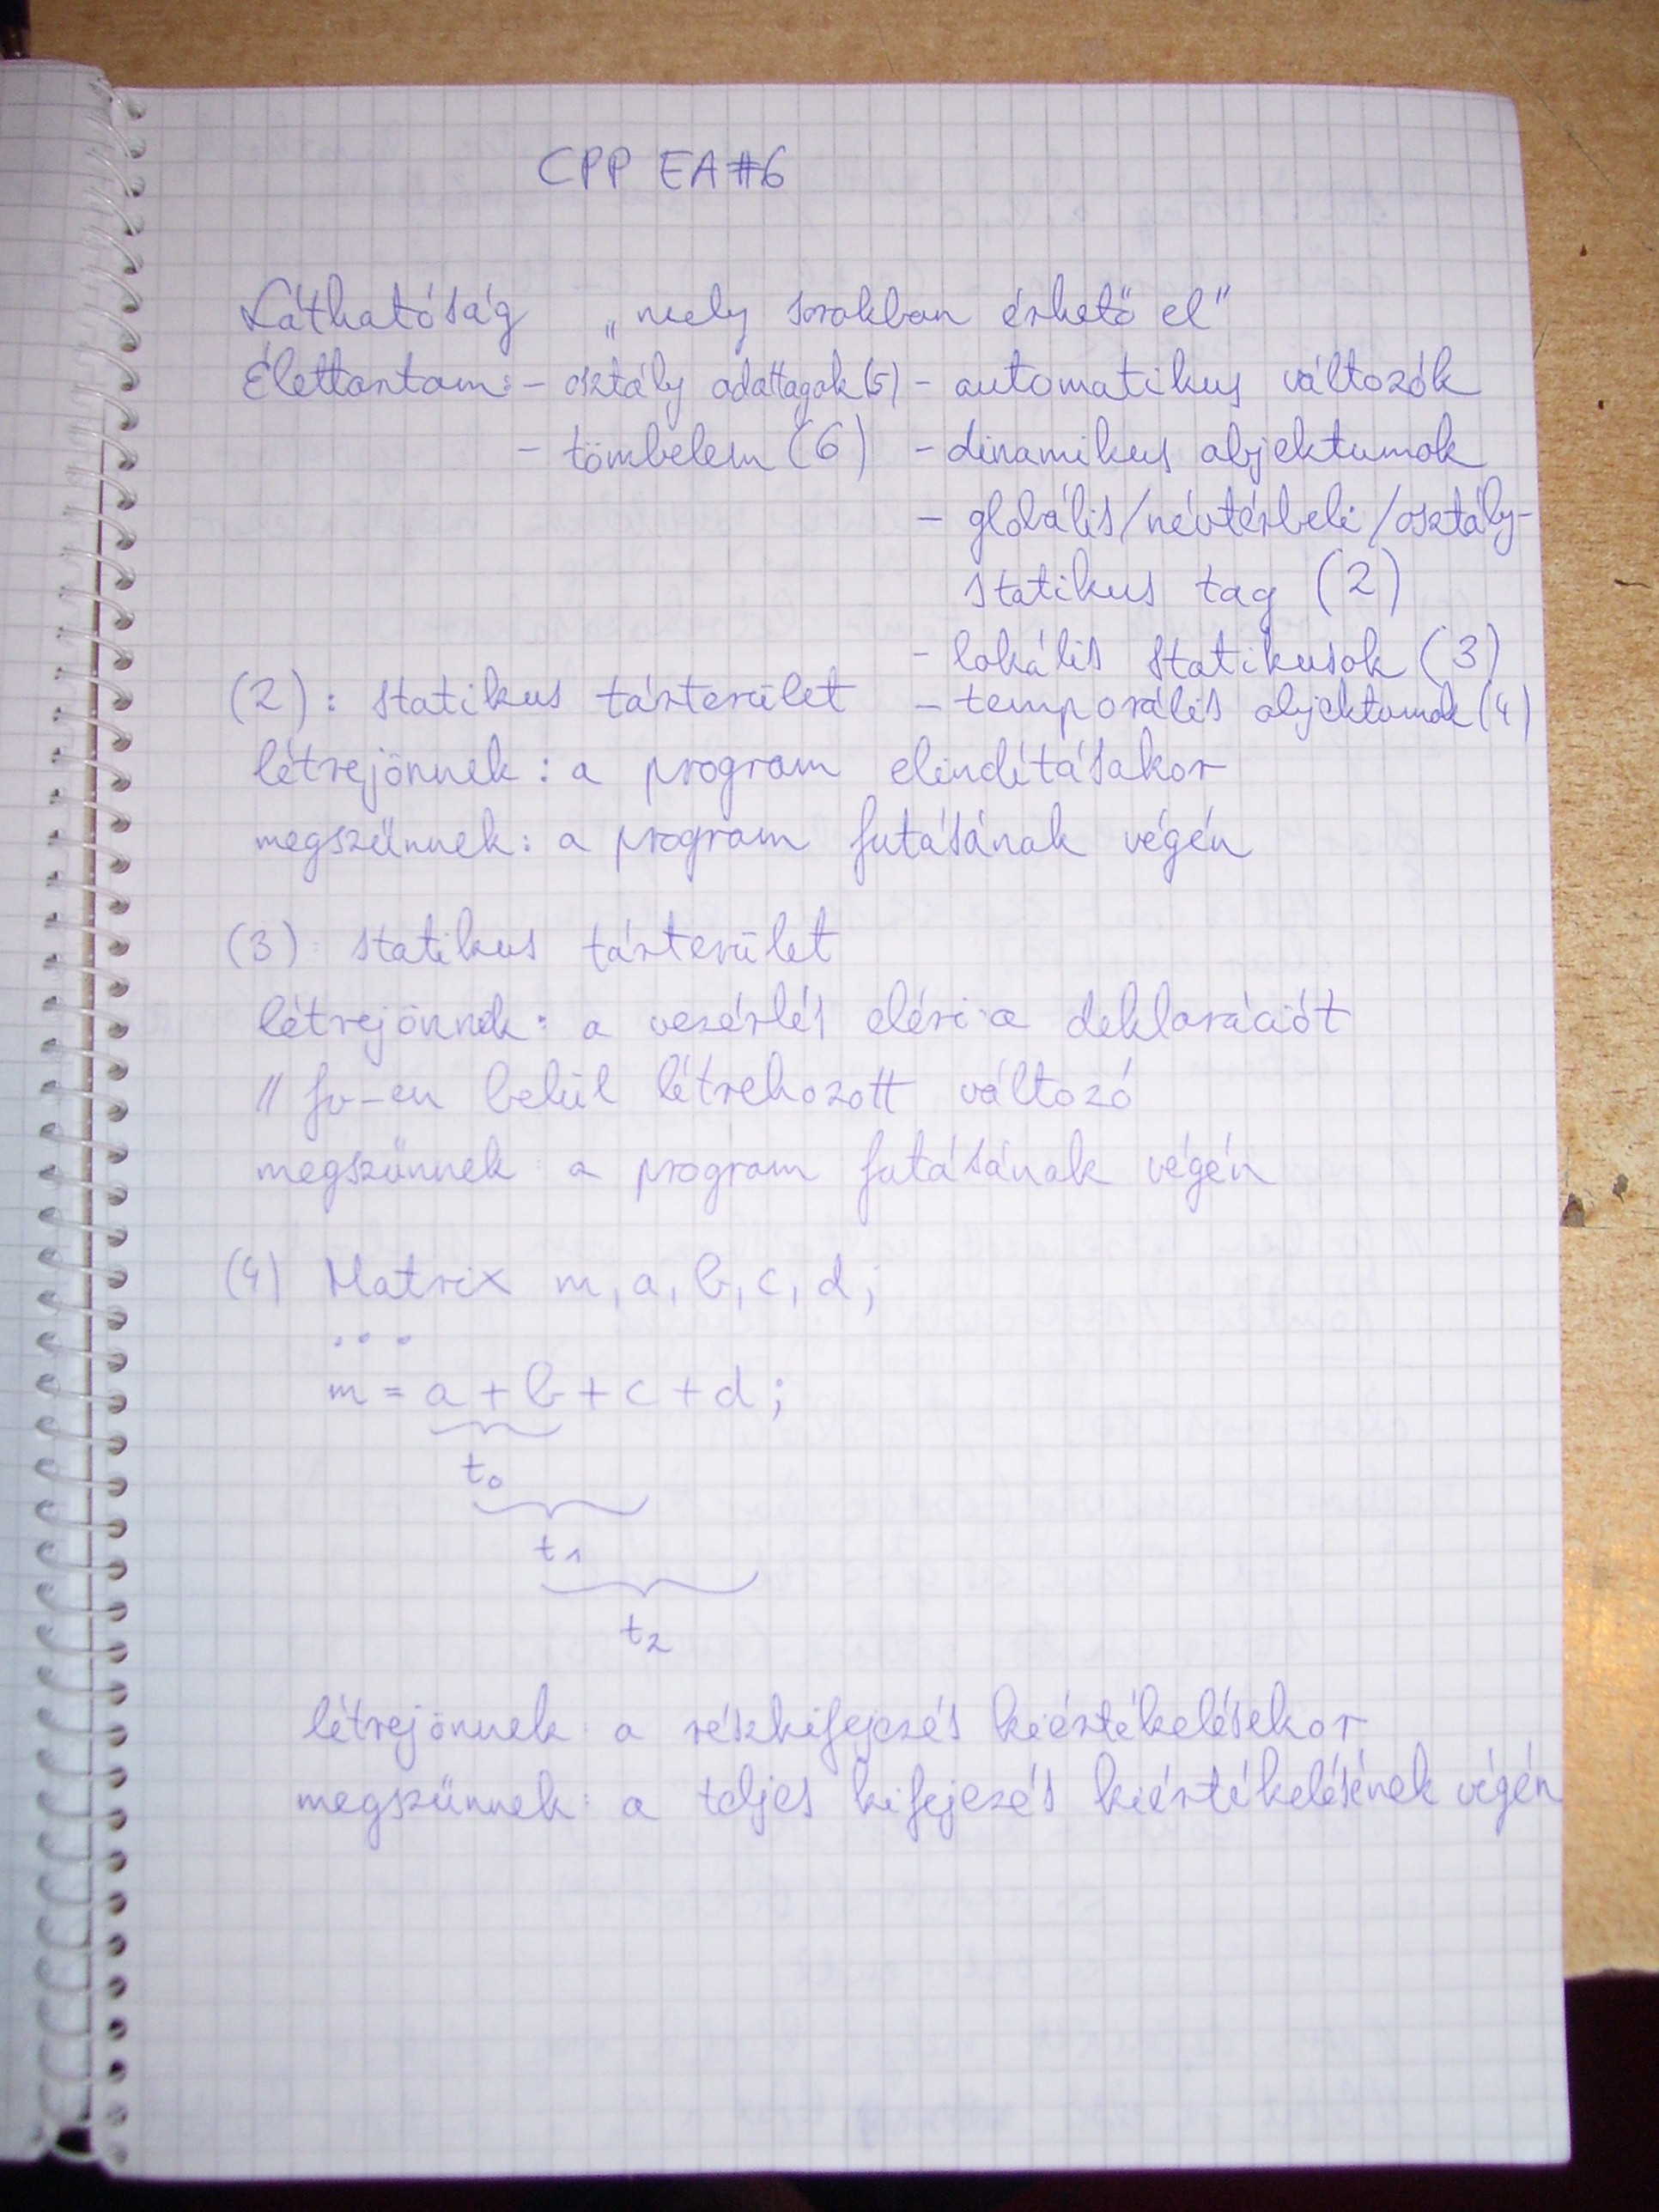 CPP EA#6
Láthatóság „mely sorokban érhető el"
Élettartam: - osztály adattagok (5) - automatikus változók
- tömbelem (6) - dinamikus objektumok
- globális/névtérbeli/osztály-
statikus tag (2)
- lokális statikusok (3)
(2): statikus tárterület - temporális objektumok (4)
létrejönnek: a program elindításakor
megszűnnek: a program futásának végén
(3): statikus tárterület
létrejönnek: a vezérlés eléri a deklarációt
// fv-en belül létrehozott változó
megszűnnek: a program futásának végén
(4) Matrix m, a, b, c, d;
...
m = a + b + c + d;
t0
t1
t2
létrejönnek: a részkifejezés kiértékelésekor
megszűnnek: a teljes kifejezés kiértékelésének végén